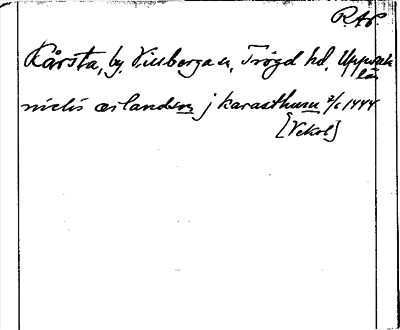 RAP.
Kårsta, by, Villberga sn, Trögd hd, Uppsala
län
nielis ærlandson j karasthusu 2/6 1444
[Vekol]